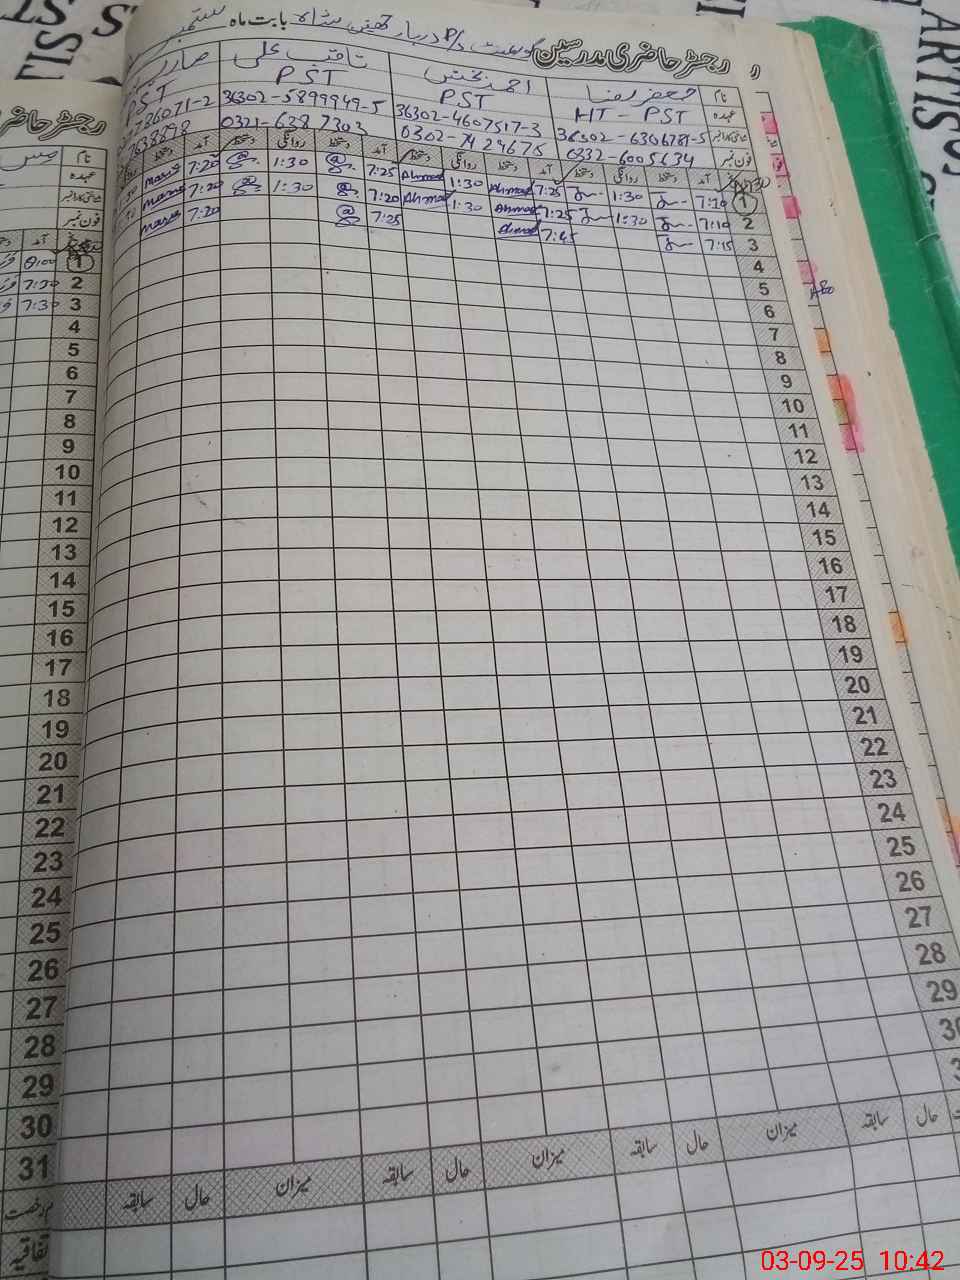 رجسٹر حاضری مدرسین گورنمنٹ P/S دربار شاہ بابت ماہ ستمبر
نام جعفر رضا احمد بخش ثاقب علی
عہدہ HT - PST PST PST PST
36302-6306781-5 36302-4607517-3 36302-5899949-5
فون نمبر 0332-6005634 0302-7429675 0321-6287303
آمد دستخط روانگی دستخط آمد دستخط روانگی دستخط آمد دستخط روانگی دستخط آمد دستخط
1 7:10 1:30 7:25 Ahmad 1:30 Ahmad 7:25 1:30 7:20
2 7:10 1:30 7:25 Ahmad 1:30 Ahmad 7:20 1:30 7:20
3 7:15 7:45 Ahmad 7:25 7:20
4
5
6
7
8
9
10
11
12
13
14
15
16
17
18
19
20
21
22
23
24
25
26
27
28
29
سابقہ حال میزان سابقہ حال میزان سابقہ حال میزان سابقہ حال
رجسٹر حاضر
نام
عہدہ
فون نمبر
آمد
1 8:00
2 7:30
3 7:30
4
5
6
7
8
9
10
11
12
13
14
15
16
17
18
19
20
21
22
23
24
25
26
27
28
29
30
31
اتفاقیہ
03-09-25 10:42